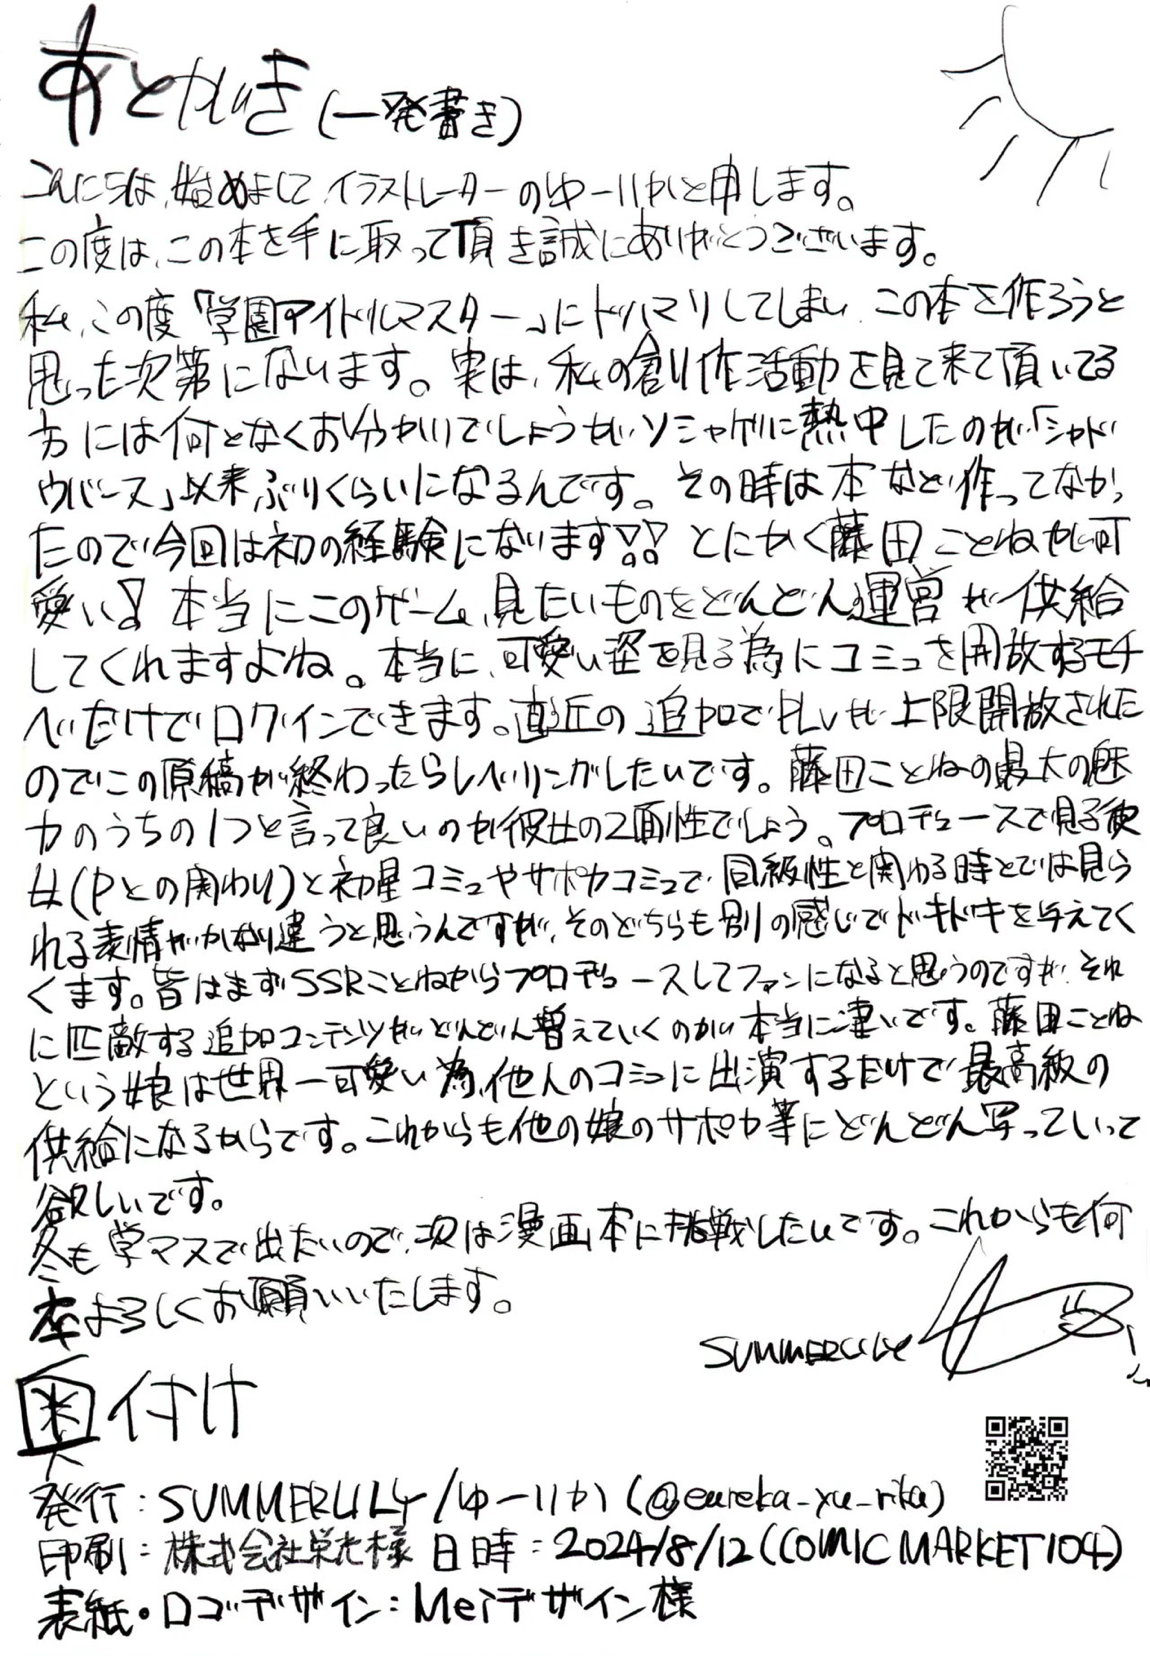 あとがき(一発書き)
こんにちは、始めまして、イラストレーターのゆーりかと申します。
この度は、この本を手に取って頂き誠にありがとうございます。
私、この度「学園アイドルマスター」にドハマりしてしまい、この本を作ろうと
思った次第になります。実は、私の創作活動を見て来て頂いてる
方には何となくお分かりでしょうが、ソシャゲに熱中したのが「シャド
ウバース」以来ぶりくらいになるんです。その時は本など作ってなかっ
たので今回は初の経験になります!!とにかく藤田ことねが可
愛い!本当にこのゲーム、見たいものをどんどん運営が供給
してくれますよね。本当に、可愛い姿を見る為にコミュを開放するモチ
ベだけでログインできます。直近の追加でPLvが上限開放された
のでこの原稿が終わったらレベリングしたいです。藤田ことねの最大の魅
力のうちの1つと言って良いのが彼女の2面性でしょう。プロデュースで見る彼
女(Pとの関わり)と初星コミュやサポカコミュで、同級性と関わる時とでは見ら
れる表情がかなり違うと思うんですが、そのどちらも別の感じでドキドキを与えてく
くます。皆はまずSSRことねからプロデュースしてファンになると思うのですが、それ
に匹敵する追加コンテンツがどんどん増えていくのが本当に凄いです。藤田ことね
という娘は世界一可愛い為、他人のコミュに出演するだけで最高級の
供給になるからです。これからも他の娘のサポカ等にどんどん写っていって
欲しいです。
冬も学マスで出たいので、次は漫画本に挑戦したいです。これからも何
卒よろしくお願いいたします。
SUMMERLILY
奥付け
発行:SUMMERLILY/ゆーりか(@eureka_yu_rika)
印刷:株式会社栄光様 日時:2024/8/12(COMIC MARKET104)
表紙・ロゴデザイン:Meiデザイン様